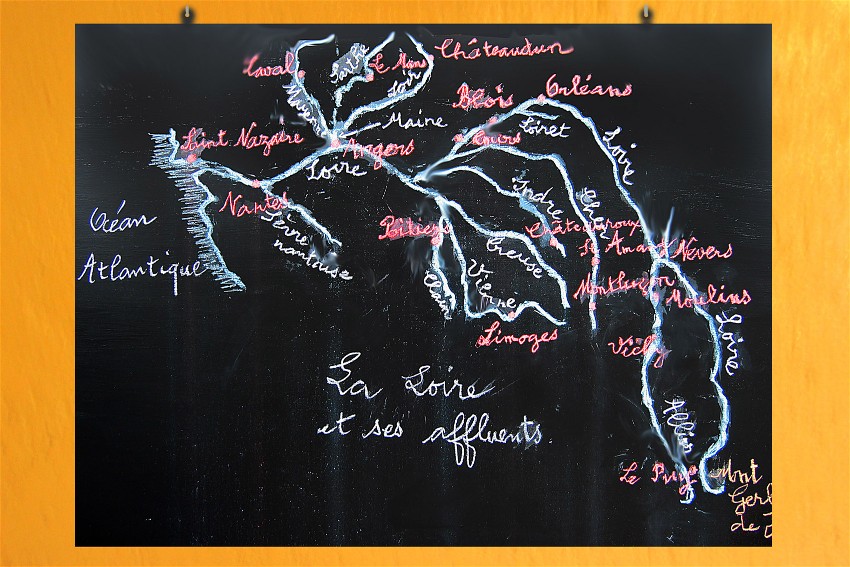 Laval
Sarthe
Le Mans
Loir
Châteaudun
Mayenne
Maine
Blois
Orléans
Saint Nazaire
Angers
Loire
Tours
Loiret
Loire
Nantes
Sèvre
nantaise
Océan
Atlantique
Indre
Cher
Châteauroux
St Amand
Nevers
Creuse
Vienne
Clain
Montluçon
Moulins
Limoges
Vichy
Loire
La Loire
et ses affluents.
Allier
Le Puy
Mont
Gerb
de J